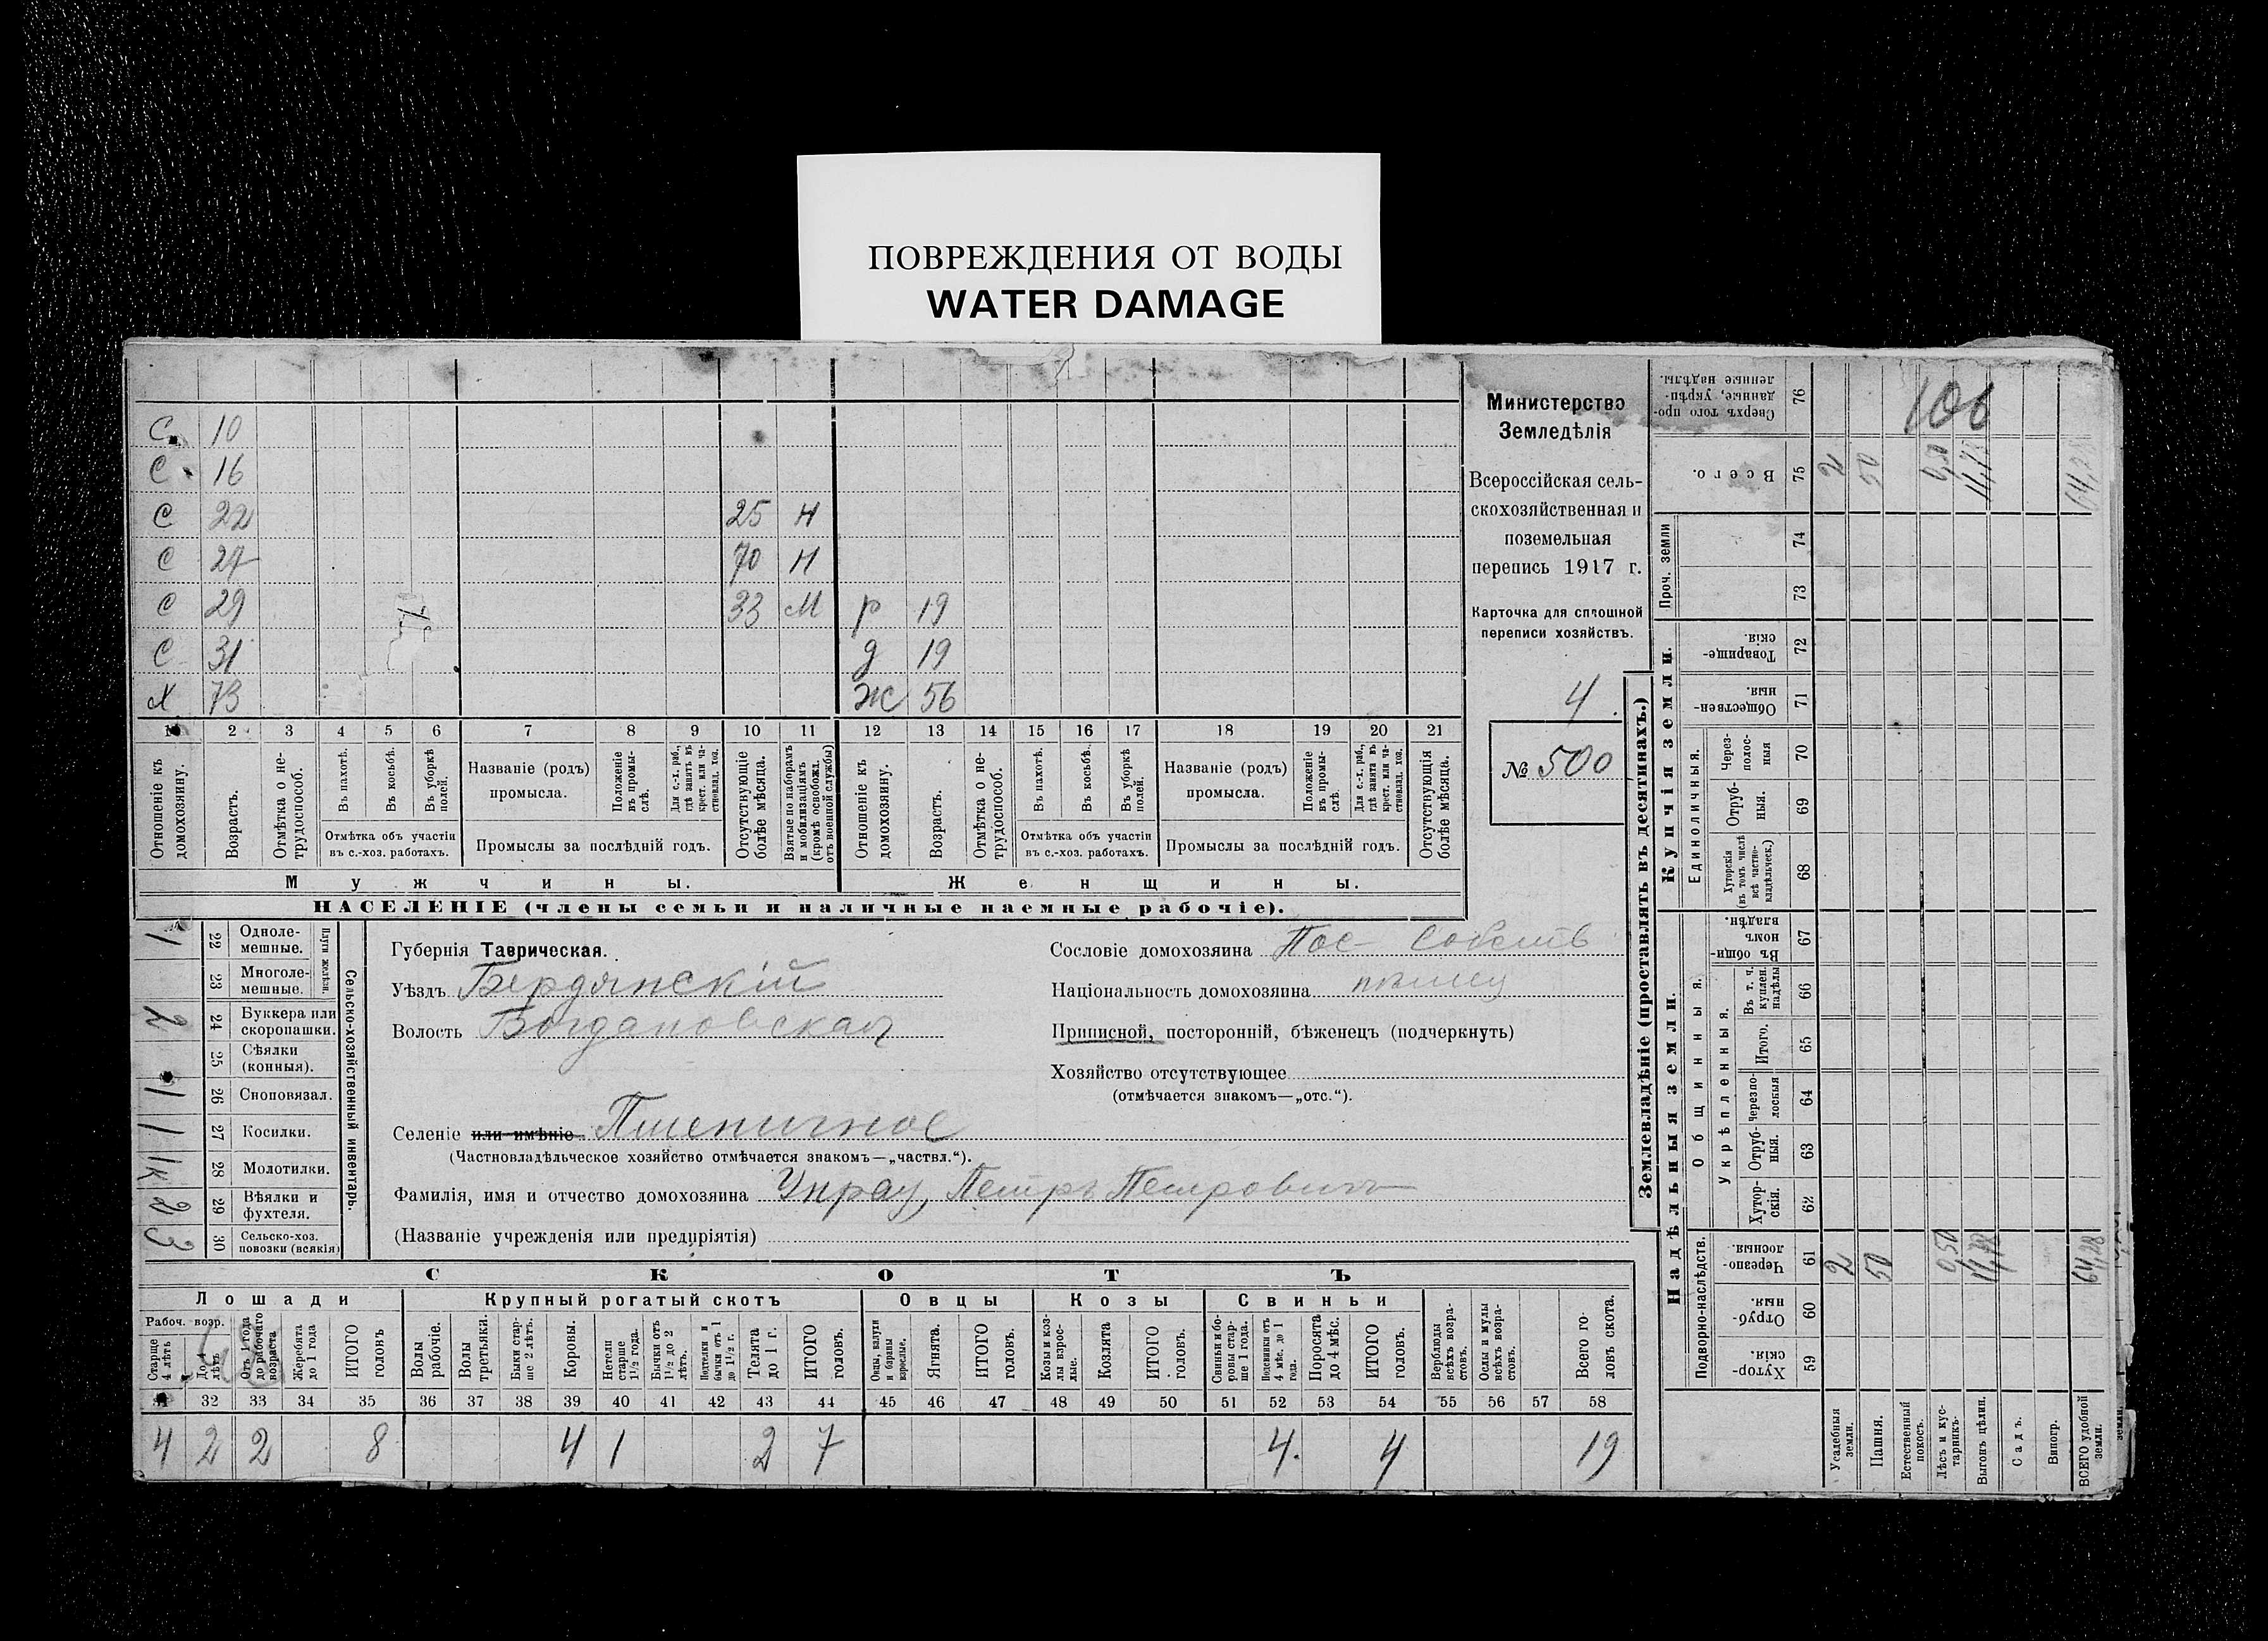 ПОВРЕЖДЕНИЯ ОТ ВОДЫ
WATER DAMAGE
С 10
С 16
С 22 25 Н
С 27 70 Н
С 29 33 М р 19
С 31 д 19
Х 73 Ж 56
1 2 3 4 5 6 7 8 9 10 11 12 13 14 15 16 17 18 19 20 21
Отношеніе къ домохозяину.
Возрастъ.
Отмѣтка о не-трудоспособ.
Въ пахотѣ.
Въ косьбѣ.
Въ уборкѣ полей.
Отмѣтка объ участіи
въ с.-хоз. работахъ.
Названіе (родъ)
промысла.
Положеніе въ промы-слѣ.
Для с.-х. раб., гдѣ занятъ въ крест. или ча-стновлад. хоз.
Промыслы за послѣдній годъ.
Отсутствующіе болѣе мѣсяца.
Взятые по наборамъ и мобилизаціямъ (кромѣ освобожд. отъ военной службы)
Отношеніе къ домохозяину.
Возрастъ.
Отмѣтка о не-трудоспособ.
Въ пахотѣ.
Въ косьбѣ.
Въ уборкѣ полей.
Отмѣтка объ участіи
въ с.-хоз. работахъ.
Названіе (родъ)
промысла.
Положеніе въ промы-слѣ.
Для с.-х. раб., гдѣ занята въ крест. или ча-стновлад. хоз.
Промыслы за послѣдній годъ.
Отсутствующія болѣе мѣсяца.
Мужчины. Женщины.
НАСЕЛЕНІЕ (члены семьи и наличные наемные рабочіе).
Министерство
Земледѣлія
Всероссійская сель-
скохозяйственная и
поземельная
перепись 1917 г.
Карточка для сплошной
переписи хозяйствъ.
4.
№ 500
1 22 Одноле-мешные.
23 Многоле-мешные.
2 24 Буккера или скоропашки.
25 Сѣялки (конныя).
1 26 Сноповязал.
1 27 Косилки.
1к 28 Молотилки.
2 29 Вѣялки и фухтеля.
3 30 Сельско-хоз. повозки (всякія)
Плуги желѣзн.
Сельско-хозяйственный инвентарь.
Губернія Таврическая.
Уѣздъ Бердянскій
Волость Богдановская
Селеніе или имѣніе Пшеничное
(Частновладѣльческое хозяйство отмѣчается знакомъ—„частвл.“).
Фамилія, имя и отчество домохозяина Унрау, Петръ Петровичъ
(Названіе учрежденія или предпріятія)
Сословіе домохозяина Пос- Собств
Національность домохозяина нѣмец
Приписной, посторонній, бѣженецъ (подчеркнуть)
Хозяйство отсутствующее
(отмѣчается знакомъ—„отс.“).
СКОТЪ
Лошади Крупный рогатый скотъ Овцы Козы Свиньи
Рабоч. возр.
Старше 4 лѣтъ
До 4 лѣтъ
Отъ 1 года до рабочаго возраста
Жеребята до 1 года
ИТОГО головъ
Волы рабочіе.
Волы третьяки.
Быки стар-ше 2 лѣтъ.
Коровы.
Нетели старше 1½ года.
Бычки отъ 1½ до 2 лѣтъ.
Подтелки и бычки отъ 1 до 1½ г.
Телята до 1 г.
ИТОГО головъ.
Овцы, валухи и бараны взрослые.
Ягнята.
ИТОГО головъ.
Козы и коз-лы взрос-лые.
Козлята
ИТОГО головъ.
Свиньи и бо-ровы стар-ше 1 года.
Подсвинки отъ 4 мѣс. до 1 года.
Поросята до 4 мѣс.
ИТОГО головъ.
Верблюды всѣхъ возра-стовъ.
Ослы и мулы всѣхъ возра-стовъ.
Всего го-ловъ скота.
32 33 34 35 36 37 38 39 40 41 42 43 44 45 46 47 48 49 50 51 52 53 54 55 56 57 58
4 2 2 8 4 1 2 7 4. 4 19
Землевладѣніе (проставлять въ десятинахъ.)
Надѣльныя земли. Купчія земли.
Подворно-наслѣдств.
Общинныя.
Укрѣпленныя.
Единоличныя.
Проч. земли
Сверхъ того про-данные, укрѣп-ленные надѣлы. 76 106
Всего. 75 2 50 0,50 11,78 64,28
74
73
Товарище-скія. 72
Обществен-ныя. 71
Через-полос-ныя 70
Отруб-ныя. 69
Хуторскія (въ томъ числѣ всѣ частно-владѣльческ.) 68
Въ общин-номъ владѣн. 67
Въ т. ч. куплен. надѣлы 66
Итого. 65
Черезпо-лосныя 64
Отруб-ныя. 63
Хутор-скія. 62
Черезпо-лосныя. 61 2 50 0,50 11,78 64,28
Отруб-ныя. 60
Хутор-скія. 59
Усадебныя земли.
Пашня.
Естественный покосъ.
Лѣсъ и кус-тарникъ.
Выгонъ цѣлин.
Садъ.
Виногр.
ВСЕГО удобной земли.